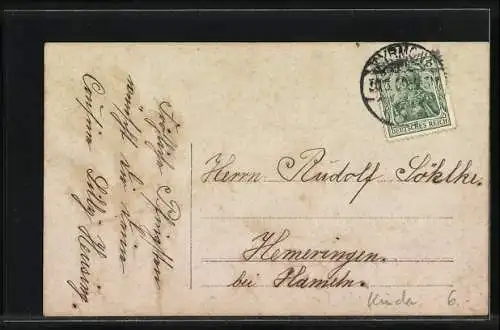 Fröhliche Pfingsten
wünscht dir deine
Cousine Lilly Hensing.
PYRMONT
DEUTSCHES REICH
5
Herrn Rudolf Söhlke.
Hemeringen.
bei Hameln.
Kinder 6.